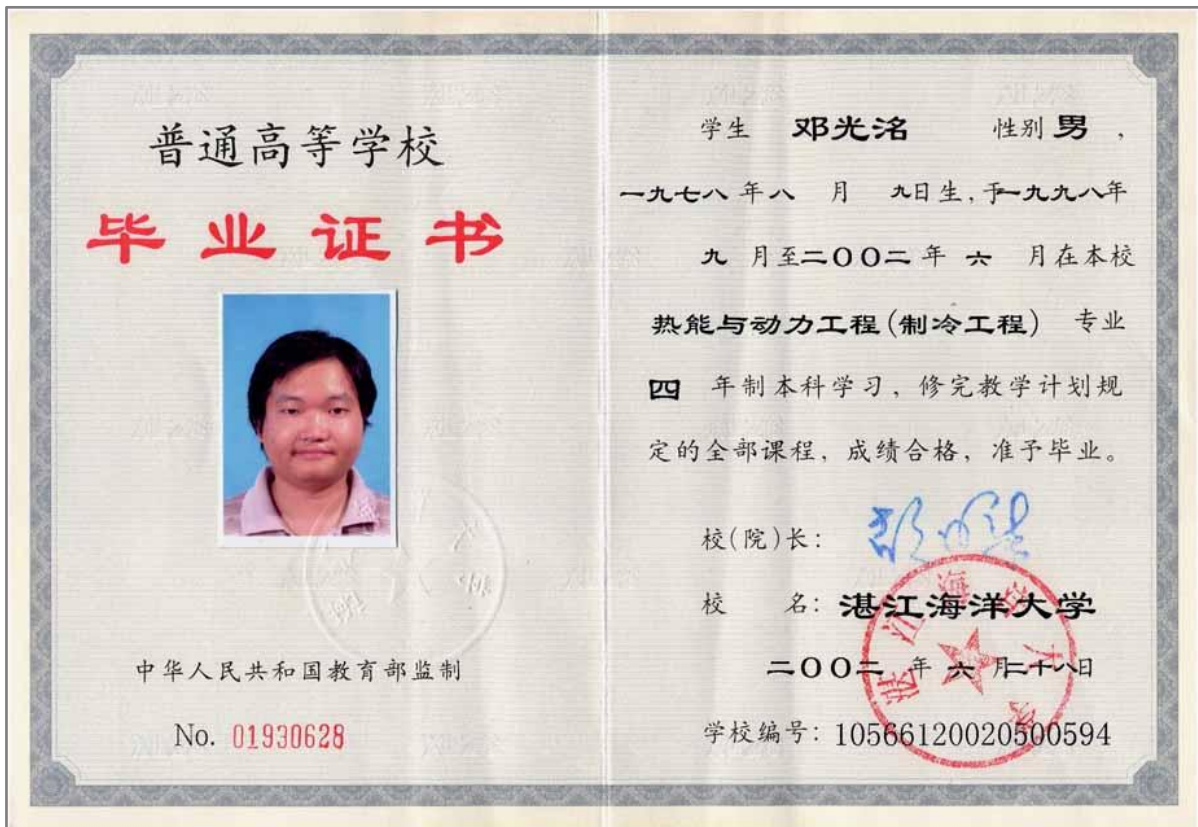 普通高等学校
毕业证书
中华人民共和国教育部监制
No. 01930628
学生 邓光洺 性别 男,
一九七八年八 月 九日生,于一九九八年
九 月至二〇〇二年 六 月在本校
热能与动力工程(制冷工程) 专业
四 年制本科学习,修完教学计划规
定的全部课程,成绩合格,准予毕业。
校(院)长:
校 名: 湛江海洋大学
二〇〇二 年 六 月二十八日
学校编号: 10566120020500594
湛江海洋大学